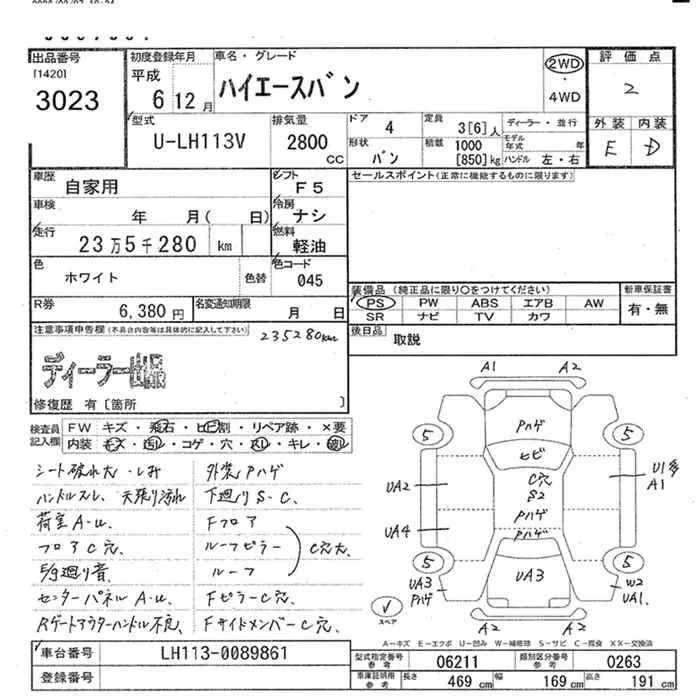 出品番号
[1420]
3023
初度登録年月
平成
6 12月
車名・グレード
ハイエースバン
2WD
・
4WD
評価点
2
外装 内装
E D
型式
U-LH113V
排気量
2800
CC
ドア
4
定員
3[6]人
ディーラー・並行
モデル年式 年
形状
バン
積載
1000
[850]kg
ハンドル 左・右
車歴
自家用
シフト
F5
車検
年 月( 日)
冷房
ナシ
走行
23万5千280 km
燃料
軽油
色
ホワイト
色替
色コード
045
R券
6,380円
名変通知期限
月 日
セールスポイント(正常に機能するものに限ります)
装備品 (純正品に限り○をつけてください)
PS PW ABS エアB AW
SR ナビ TV カワ
新車保証書
有・無
後日品
取説
注意事項申告欄(不具合内容等は具体的に記入して下さい)
235280km
ディーラー出品
修復歴 有〔箇所 〕
検査員記入欄
FW キズ・飛石・ヒビ割・リペア跡・×要
内装 キズ・汚レ・コゲ・穴・スレ・キレ・破レ
シート破れ大・しみ
ハンドルスレ、天張り汚れ
荷室A-u、
フロアC穴、
センターパネルA-u、
Rゲートアウターハンドル不良、
外装Pハゲ
下廻りS-C、
Fフロア
ルーフピラー
ルーフ
C穴大、
FピラーC穴
FサイドメンバーC穴、
A1 A2
Pハゲ
ヒビ
5 5
C穴
S2
Pハゲ
Pハゲ
UA2
UA4
U1多
A1
5 5
UA3
Pハゲ
UA3
W2
UA1、
A2 A2
スペア
A-キズ E-エクボ U-凹み W-補修跡 S-サビ C-腐食 XX-交換済
車台番号
LH113-0089861
登録番号
型式指定番号
参考
06211
類別区分番号
参考
0263
車庫証明用
参考
長さ 469 cm 幅 169 cm 高さ 191 cm